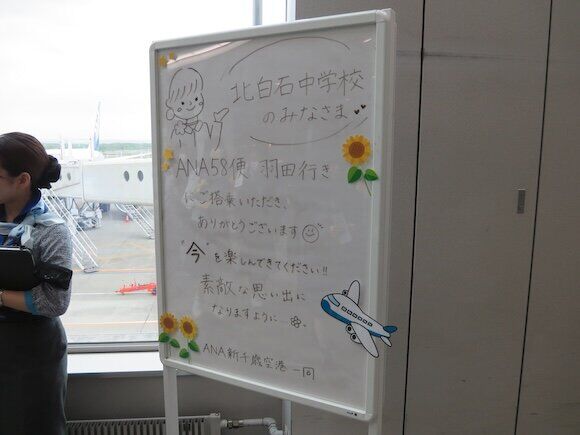 北白石中学校
のみなさま
ANA58便 羽田行き
にご搭乗いただき、
ありがとうございます
"今"を楽しんできてください!!
素敵な思い出に
なりますように…
ANA新千歳空港一同